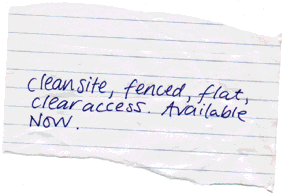 cleansite, fenced, flat,
clear access. Available
Now.